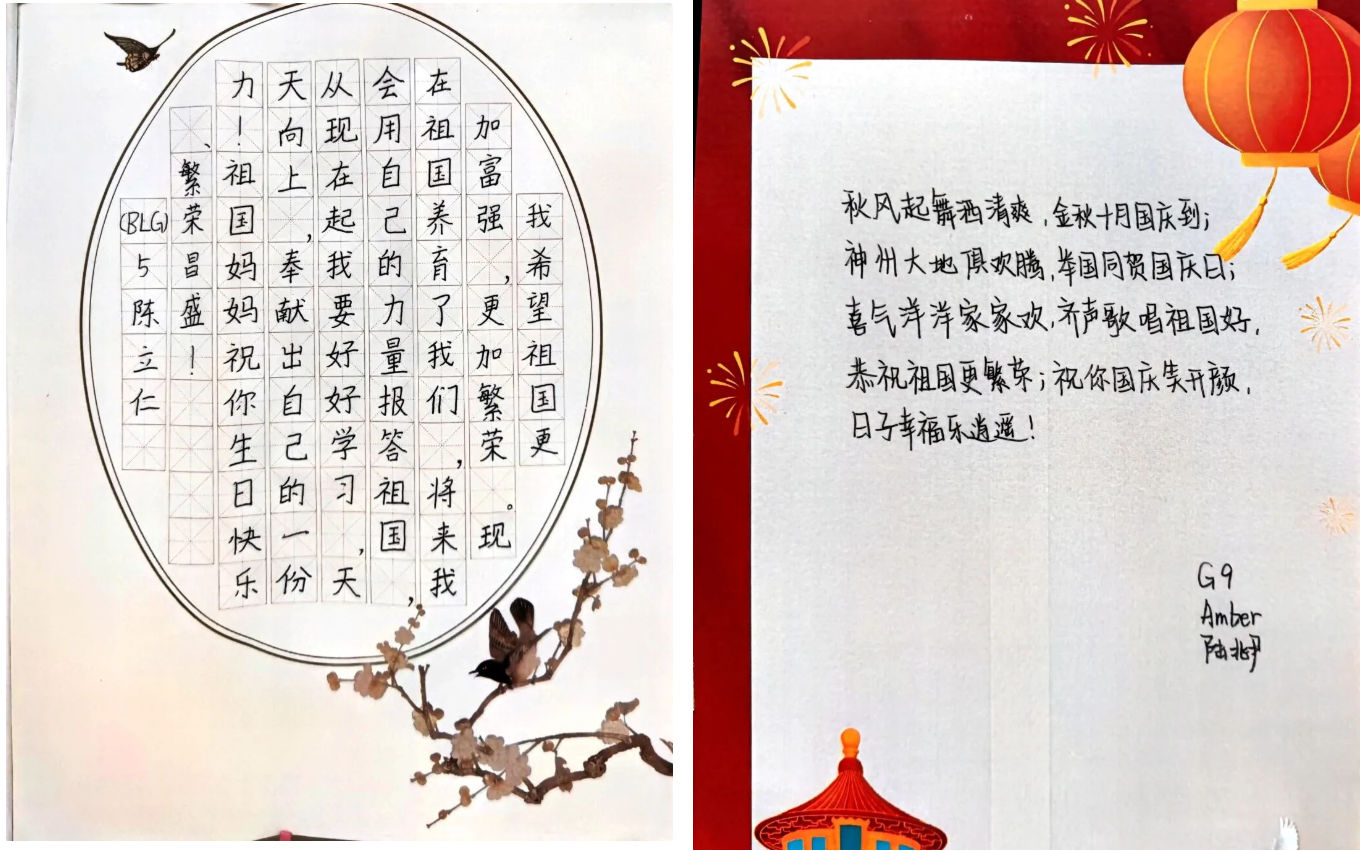 我希望祖国更
加富强，更加繁荣。现
在祖国养育了我们，将来我
会用自己的力量报答祖国，
从现在起我要好好学习，天
天向上，奉献出自己的一份
力！祖国妈妈祝你生日快乐
、繁荣昌盛！
(BLG)5陈立仁
秋风起舞洒清爽,金秋十月国庆到;
神州大地俱欢腾,举国同贺国庆日;
喜气洋洋家家欢,齐声歌唱祖国好,
恭祝祖国更繁荣;祝你国庆笑开颜,
日子幸福乐逍遥!
G9
Amber